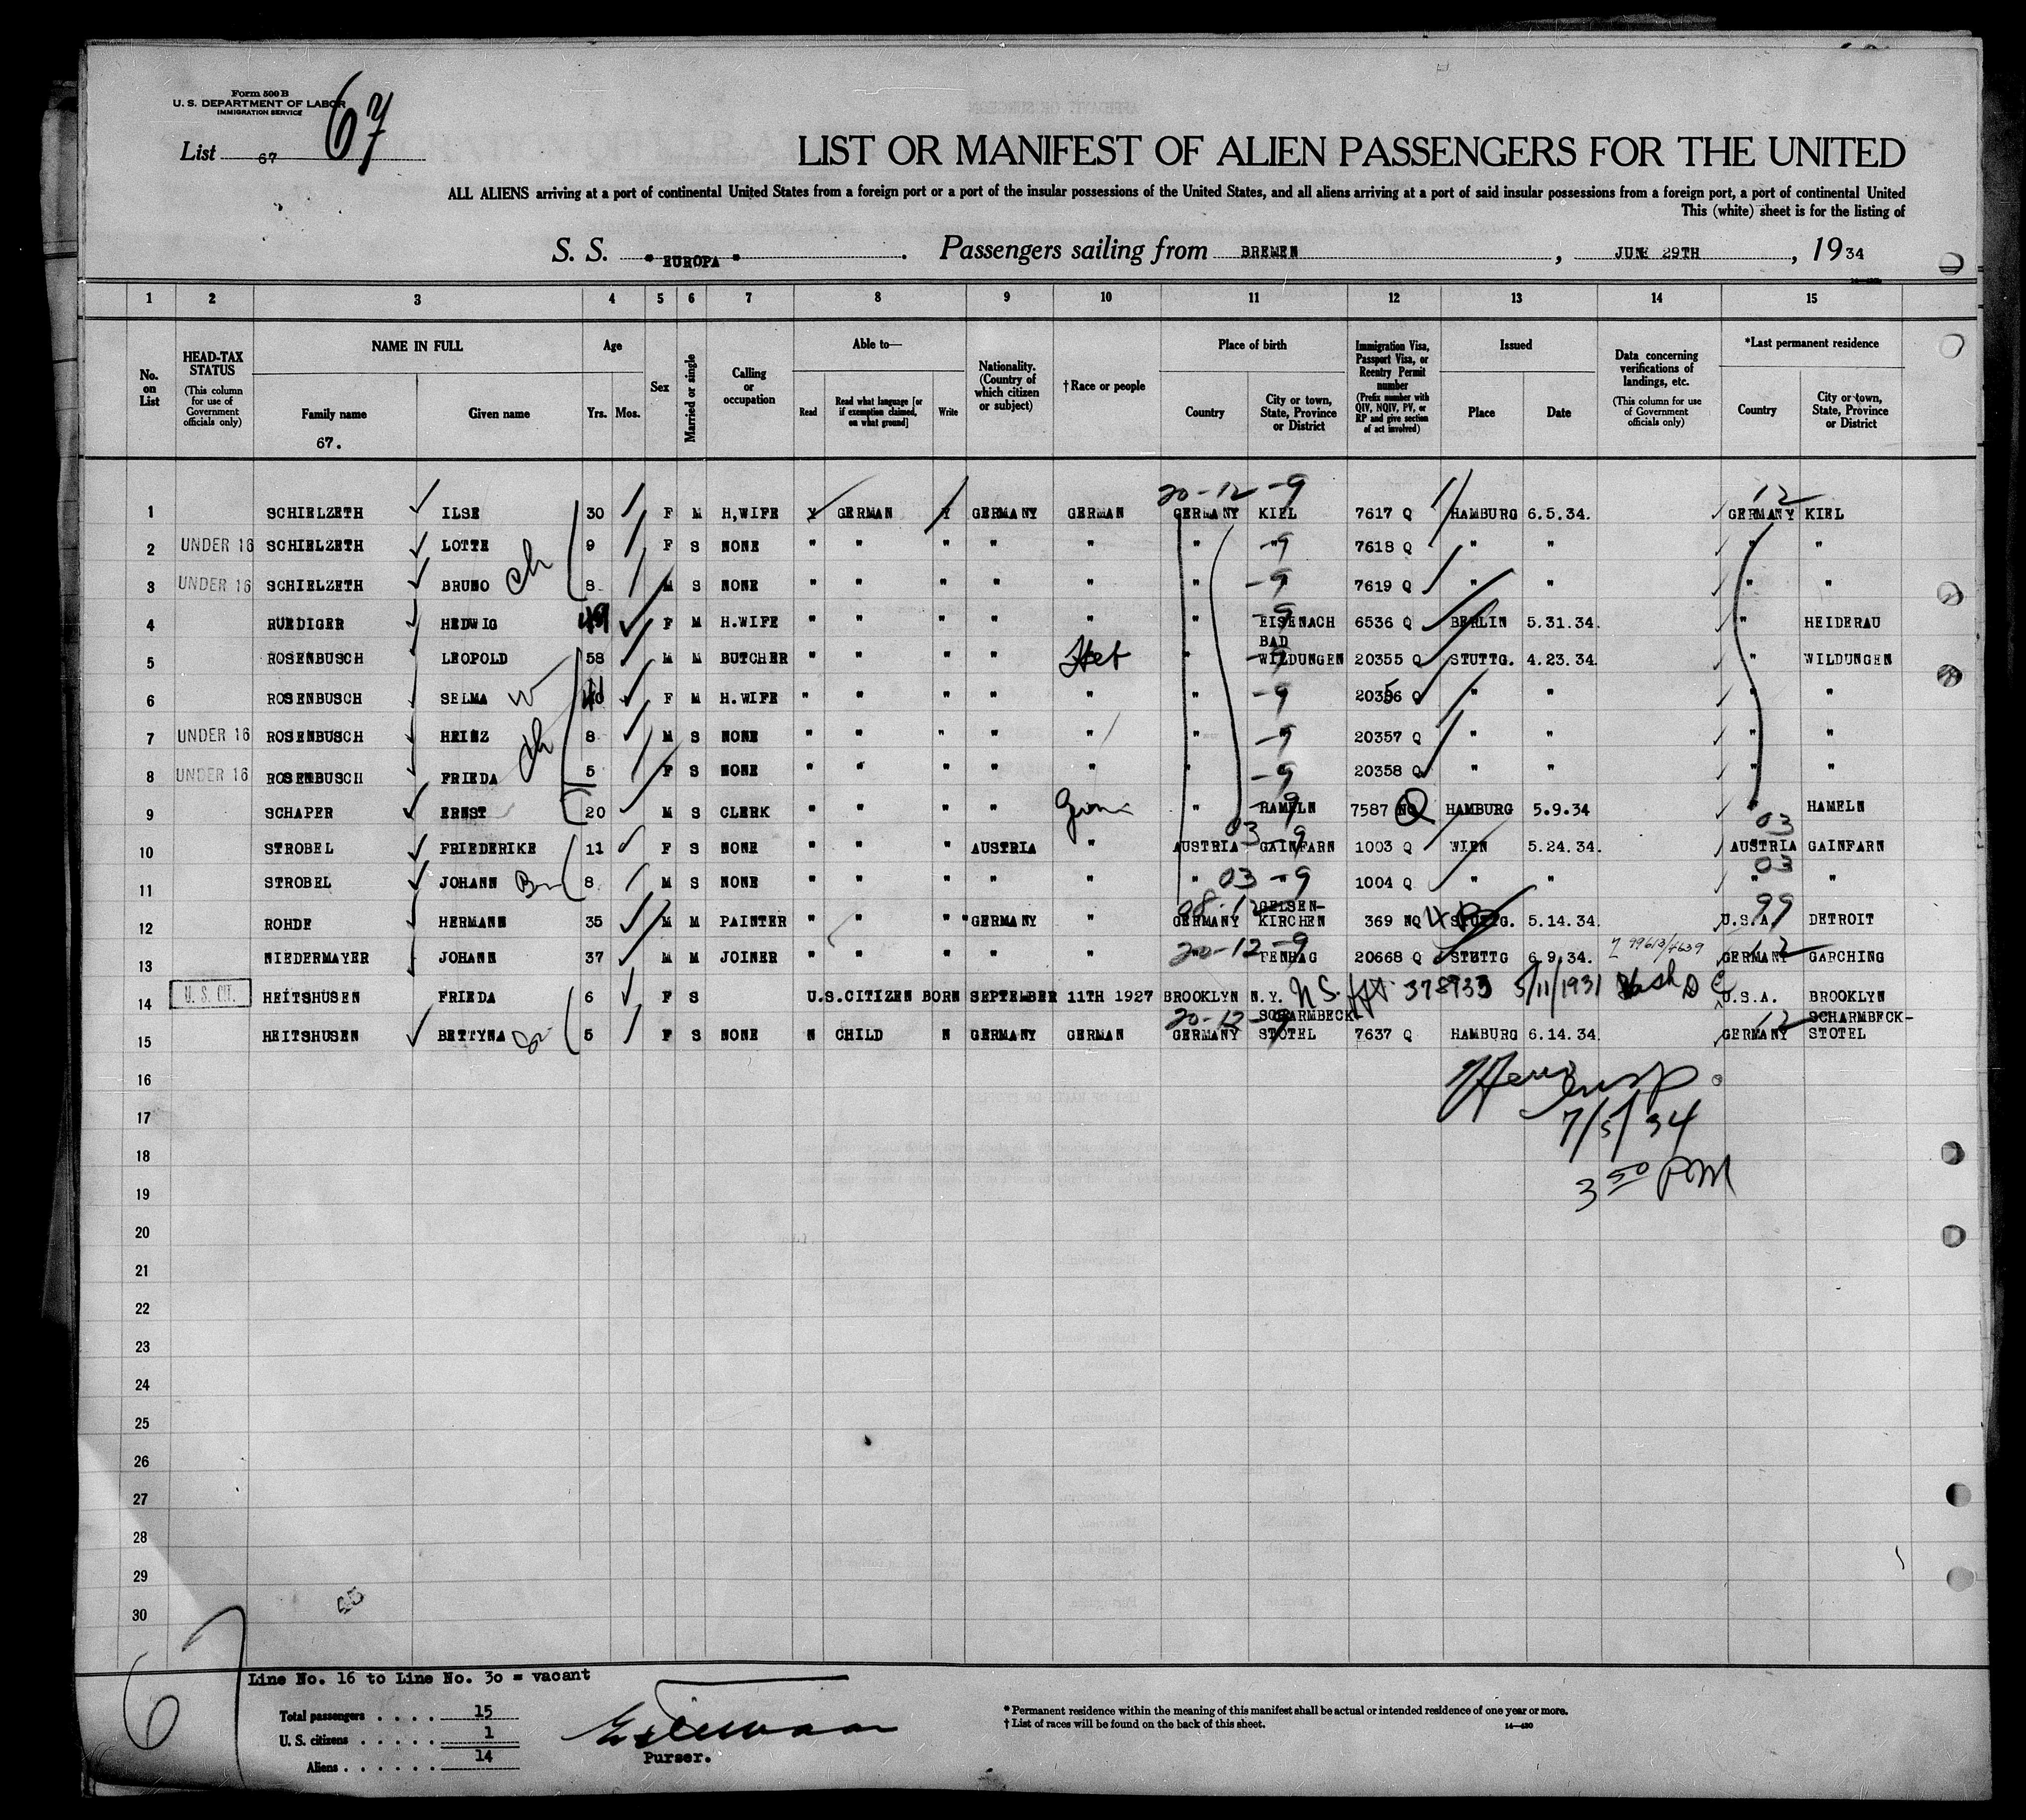 Form 500 B
U. S. DEPARTMENT OF LABOR
IMMIGRATION SERVICE
67
List 67
LIST OR MANIFEST OF ALIEN PASSENGERS FOR THE UNITED
ALL ALIENS arriving at a port of continental United States from a foreign port or a port of the insular possessions of the United States, and all aliens arriving at a port of said insular possessions from a foreign port, a port of continental United
This (white) sheet is for the listing of
S. S. " EUROPA " . Passengers sailing from BREMEN , JUNE 29TH , 1934
1 2 3 4 5 6 7 8 9 10 11 12 13 14 15
No. on List
HEAD-TAX STATUS (This column for use of Government officials only)
NAME IN FULL
Family name Given name
67.
Age
Yrs. Mos.
Sex
Married or single
Calling or occupation
Able to—
Read
Read what language [or if exemption claimed, on what ground]
Write
Nationality. (Country of which citizen or subject)
† Race or people
Place of birth
Country
City or town, State, Province or District
Immigration Visa, Passport Visa, or Reentry Permit number (Prefix number with QIV, NQIV, PV, or RP and give section of act involved)
Issued
Place Date
Data concerning verifications of landings, etc. (This column for use of Government officials only)
*Last permanent residence
Country
City or town, State, Province or District
20-12-9 12
1 SCHIELZETH ILSE 30 F M H,WIFE Y GERMAN Y GERMANY GERMAN GERMANY KIEL 7617 Q HAMBURG 6.5.34. GERMANY KIEL
2 UNDER 16 SCHIELZETH LOTTE 9 F S NONE " " " " " " -9 7618 Q " " " "
3 UNDER 16 SCHIELZETH BRUNO ch 8 M S NONE " " " " " " -9 7619 Q " " " "
4 RUEDIGER HEDWIG 49 F M H.WIFE " " " " " " -9 EISENACH 6536 Q BERLIN 5.31.34. " HEIDERAU
5 ROSENBUSCH LEOPOLD 58 M M BUTCHER " " " " Heb " BAD WILDUNGEN 20355 Q STUTTG. 4.23.34. " WILDUNGEN
6 ROSENBUSCH SELMA W 41 F M H.WIFE " " " " " " -9 20356 Q " " " "
7 UNDER 16 ROSENBUSCH HEINZ ch 8 M S NONE " " " " " " -9 20357 Q " " " "
8 UNDER 16 ROSENBUSCH FRIEDA 5 F S NONE " " " " " " -9 20358 Q " " " "
9 SCHAPER ERNST 20 M S CLERK " " " " " -9 HAMELN 7587 Q HAMBURG 5.9.34 " HAMELN
03 -9 03
10 STROBEL FRIEDERIKE 11 F S NONE " " " AUSTRIA " AUSTRIA GAINFARN 1003 Q WIEN 5.24.34. AUSTRIA GAINFARN
11 STROBEL JOHANN 8 M S NONE " " " " " " 03 -9 1004 Q " " 03 " "
12 ROHDE HERMANN 35 M M PAINTER " " " "GERMANY " GERMANY GELSEN-KIRCHEN 369 NQ STUTTG. 5.14.34. 99 U.S.A. DETROIT
13 NIEDERMAYER JOHANN 37 M M JOINER " " " " " 20-12-9 FENHAG 20668 Q STUTTG 6.9.34. GERMANY 12 GARCHING
14 U. S. CIT. HEITSHUSEN FRIEDA 6 F S U.S.CITIZEN BORN SEPTELBER 11TH 1927 BROOKLYN N.Y. 378933 5/11/1931 Wash D C U.S.A. BROOKLYN
15 HEITSHUSEN BETTYNA 5 F S NONE N CHILD N GERMANY GERMAN 20-12-9 GERMANY SCHARMBECK-STOTEL 7637 Q HAMBURG 6.14.34. 12 GERMANY SCHARMBECK-STOTEL
16
17
18
19
20
21
22
23
24
25
26
27
28
29
30
Insp
7/5/34
3 50 PM
67
Line No. 16 to Line No. 30 = vacant
Total passengers . . . . 15
U. S. citizens . . . . . 1
Aliens . . . . . . 14
Purser.
* Permanent residence within the meaning of this manifest shall be actual or intended residence of one year or more.
† List of races will be found on the back of this sheet.
14—430